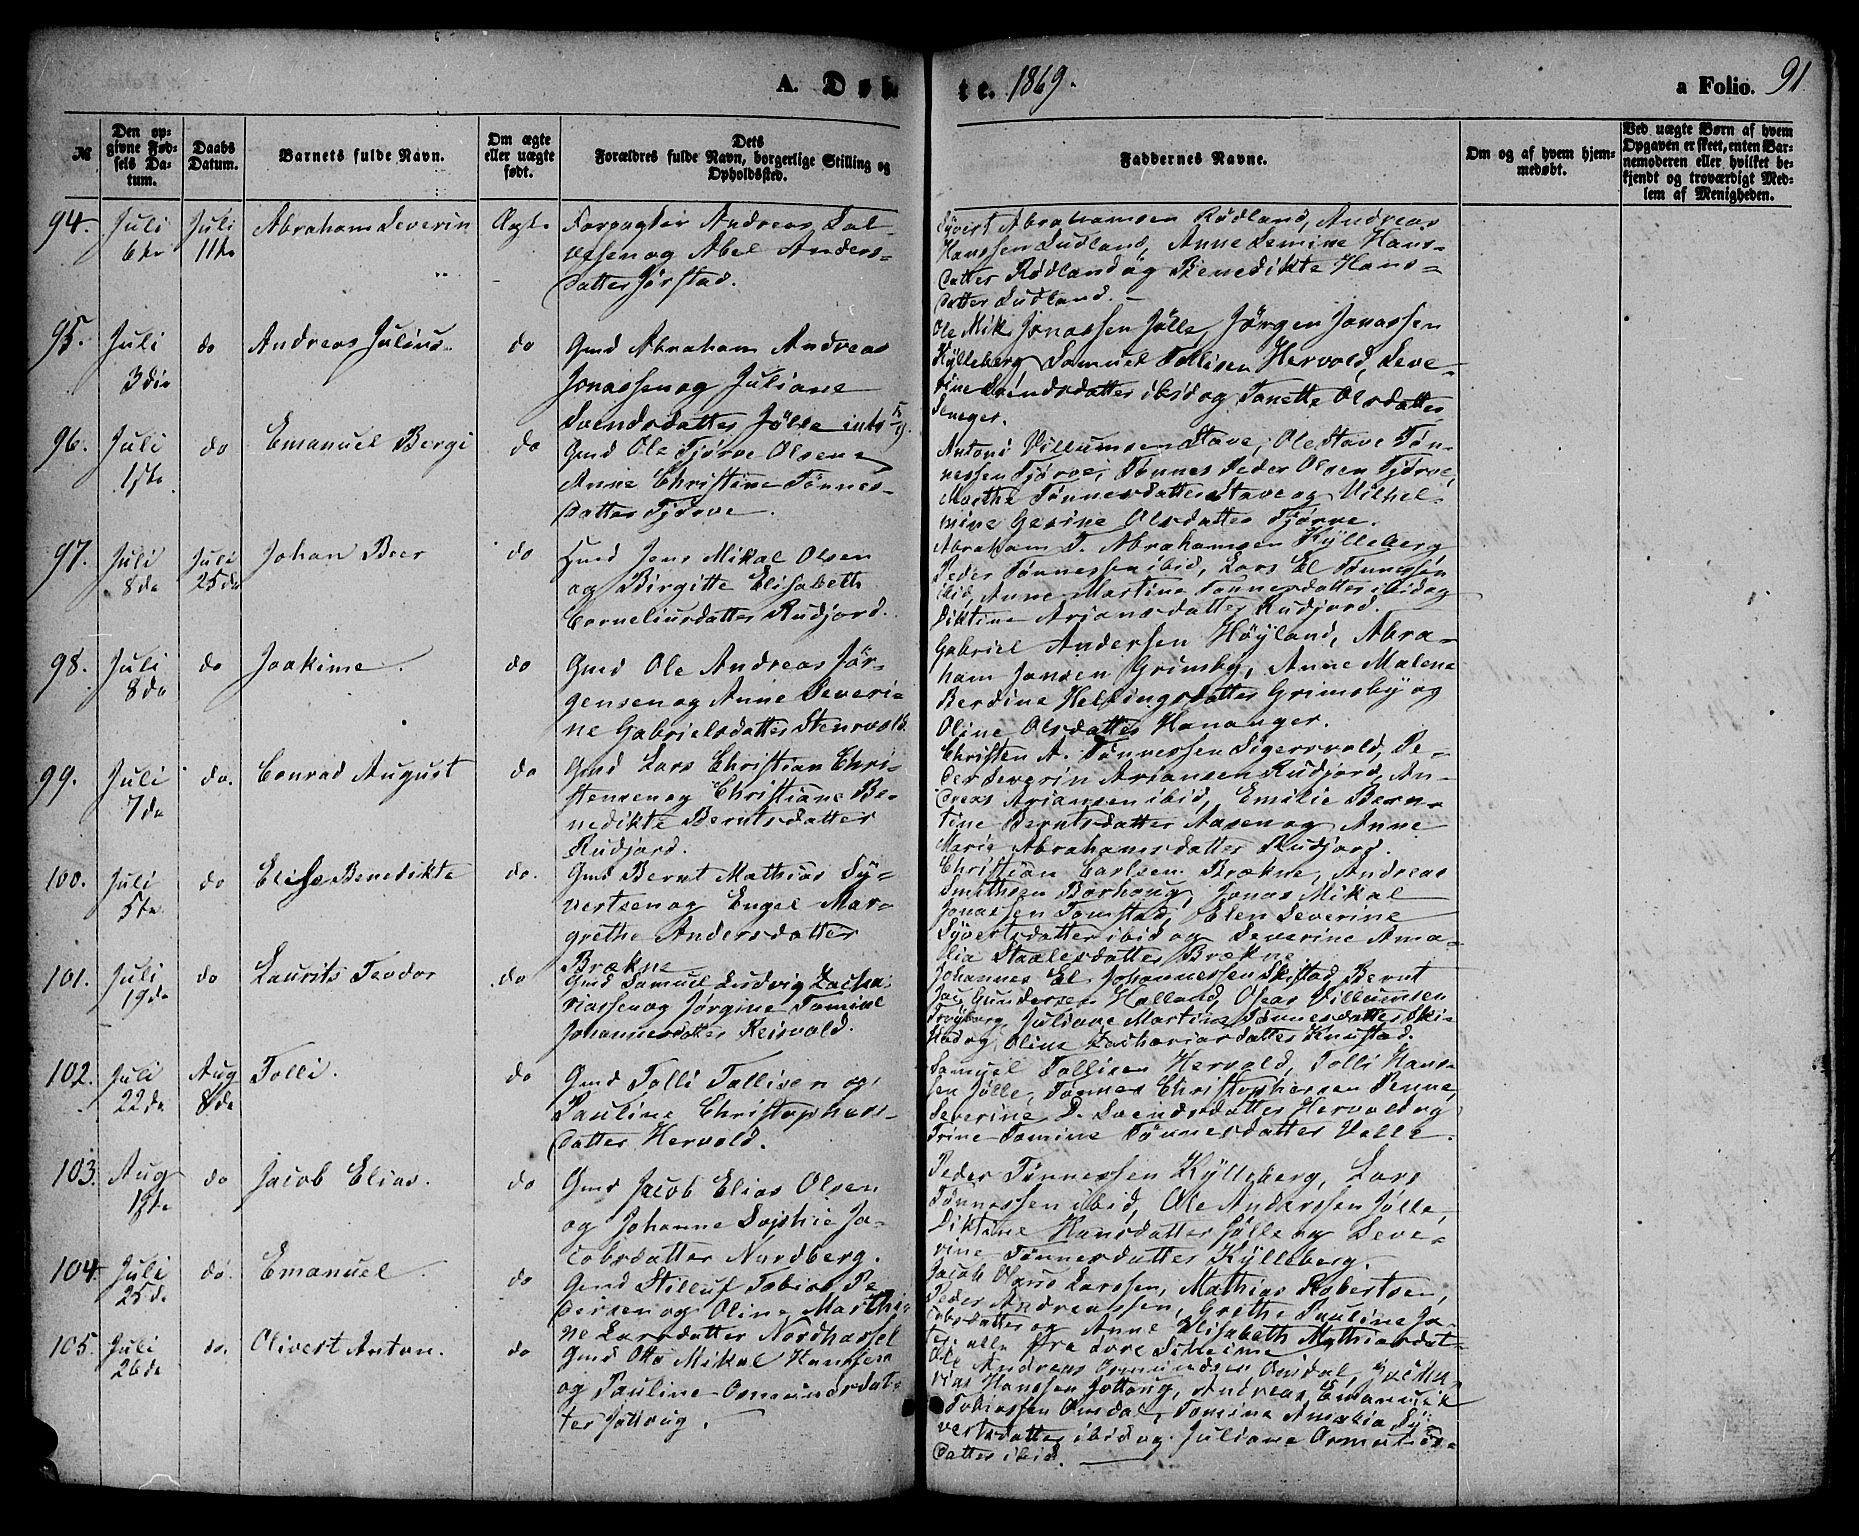 A. Døbte. 1869.
a Folio. 91
№
Den opgivne Fødsels Datum.
Daabs Datum.
Barnets fulde Navn.
Om ægte eller uægte født.
Dets Forældres fulde Navn, borgerlige Stilling og Opholdssted.
Faddernes Navne.
Om og af hvem hjemmedøbt.
Ved uægte Børn af hvem Opgaven er skeet, enten Barnemoderen eller hvilket bekjendt og troværdigt Medlem af Menigheden.
94. Juli 6te Juli 11te Abraham Severin Ægte
Forpagter Andreas Sal-
vesen og Abel Anders-
datter Jørstad.
Syvert Abrahamsen Rødland, Andreas
Hanssen Sudland, Anne Semine Hans-
datter Rødland og Benedikte Hans-
datter Sudland.
95. Juli 3die do Andreas Julius do
Gmd Abraham Andreas
Jonassen og Juliane
Svendsdatter Jølle
Ole Mik. Jonassen Jølle, Jørgen Jonassen
Kylleberg, Samuel Tollisen Hervold, Seve-
rine Svendsdatter ibid og Tonette Olsdatter
96. Juli 1ste do Emanuel Bergi do
Gmd Ole Tjørve Olsen
Anne Christine Tønnes-
datter Tjørve.
Antoni Villumsen Stave, Ole Stave Tøn-
nessen Tjørve, Tønnes Peder Olsen Tjørve,
Marthe Tønnesdatter Stave og Vilhel-
mine Gesine Olsdatter Tjørve.
97. Juli 8de Juli 25de Johan Beer do
Gmd Jens Mikal Olsen
og Birgitte Elisabeth
Corneliusdatter Rudjord.
Abraham T. Abrahamsen Kylleberg
Peder Tønnessen ibid, Lars El Tønnessen
ibid, Anne Martine Tønnesdatter ibid og
Diktine Ariansdatter Rudjord.
98. Juli 8de do Joakime. do
Gmd Ole Andreas Jør-
gensen og Anne Severi-
ne Gabrielsdatter Stenvold.
Gabriel Andersen Høyland, Abra-
ham Jansen Grimsby, Anne Malene
Berdine Hellingsdatter Grimsby og
Oline Olsdatter Hananger.
99. Juli 7de do. Conrad August do
Gmd Lars Christian Chri-
stensen og Christiane Be-
nedikte Berntsdatter
Rudjord.
Christen A. Tønnessen Sigersvold, Pe-
der Severin Ariansen Rudjord, An-
dreas Ariansen ibid, Emilie Bern-
tine Berntsdatter Aasen og Anne
Marie Abrahamsdatter Rudjord.
100. Juli 5te do Elise Benedikte do.
Gmd Bernt Mathias Sy-
vertsen og Engel Mar-
grethe Andersdatter
Brækne
Christian Carlsen Brækne, Andreas
Smithsen Borhaug, Jonas Mikal
Jonassen Tomstad, Elen Severine
Syvertsdatter ibid og Severine Ama-
lia Staalesdatter Brækne
101. Juli 19de do Laurits Teodor do
Gmd Samuel Ludvig Zacha-
riassen og Jørgine Tomine
Johannesdatter Reisvold.
Johannes El. Johannessen Skistad, Bernt
Jac Gundersen Halland, Osear Villumsen
Juliane Martine Tønnesdatter Ski-
stad og Oline Zachariasdatter Knustad.
102. Juli 22de Aug 8de Tolli. do
Gmd Tolli Tollisen og
Pauline Christophers-
datter Hervold.
Samuel Tollisen Hervold, Tolli Hans-
sen Jølle, Tønnes Christophersen Penne,
Severine D. Svendsdatter Hervold og
Trine Tomine Tønnesdatter Valle.
103. Aug 1ste do Jacob Elias. do
Gmd Jacob Elias Olsen
og Johanne Sophie Ja-
cobsdatter Nordberg.
Peder Tønnessen Kylleberg, Lars
Tønnessen ibid, Ole Anderssen Jølle,
Diktine Hansdatter Jølle og Seve-
rine Tønnesdatter Kylleberg.
104. Juli 25de do. Emanuel. do
Gmd Stilluf Tobias Pe-
dersen og Oline Marthi-
ne Larsdatter Nordhassel
Jacob Olaus Larssen, Mathias Robertsen,
Peder Andreassen, Grethe Pauline Ja-
cobsdatter og Anne Elisabeth Mathiasdat-
ter alle fra
105. Juli 26de do. Olivert Anton. do
Gmd Otto Mikal Hanssen
og Pauline Osmundsdat-
ter Jøttoug.
Ole Andreas Osmundsen Omdal,
Hanssen Jøttoug, Andreas Emanuel
Tobiassen Omdal, Tomine Amalia Sy-
vertsdatter ibid og Juliane Osmunds-
datter ibid.